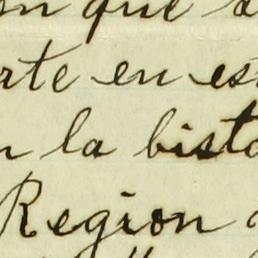 en que s
rte en es
n la bisto
Region